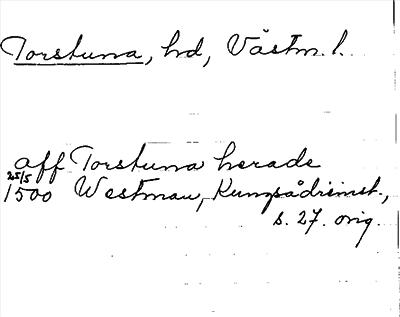 Torstuna, hd, Västm. l.
aff Torstuna herade
25/5
1500 Westmau, Kungsådrimst.,
s. 27. orig.